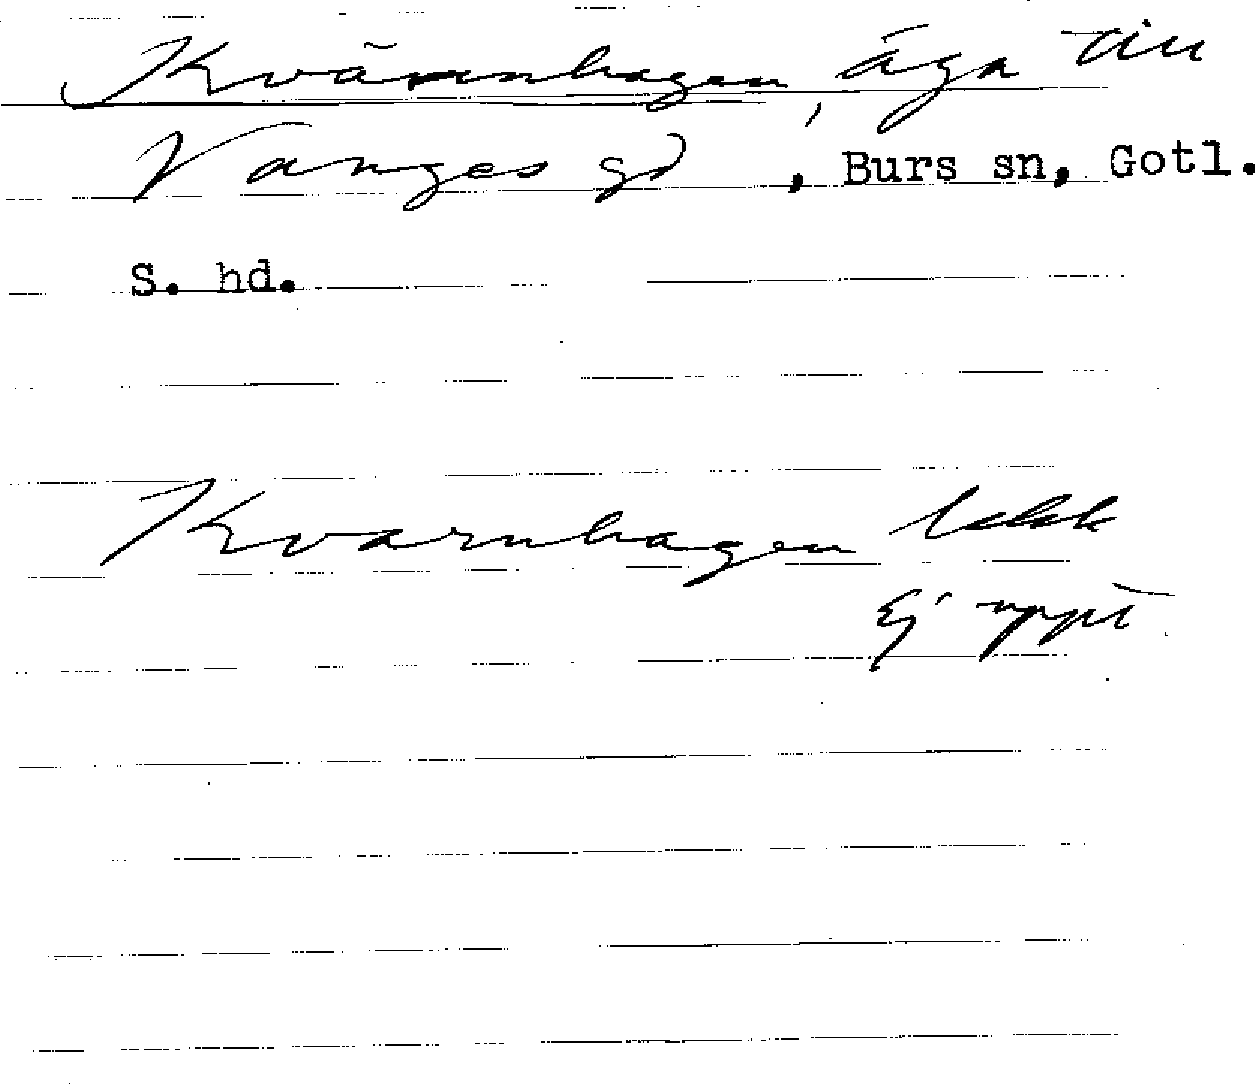 Kvärnhagen, äga till
Vanges gd, Burs sn, Gotl.
S. hd.
Kvarnhagen bekk
Ej uppt